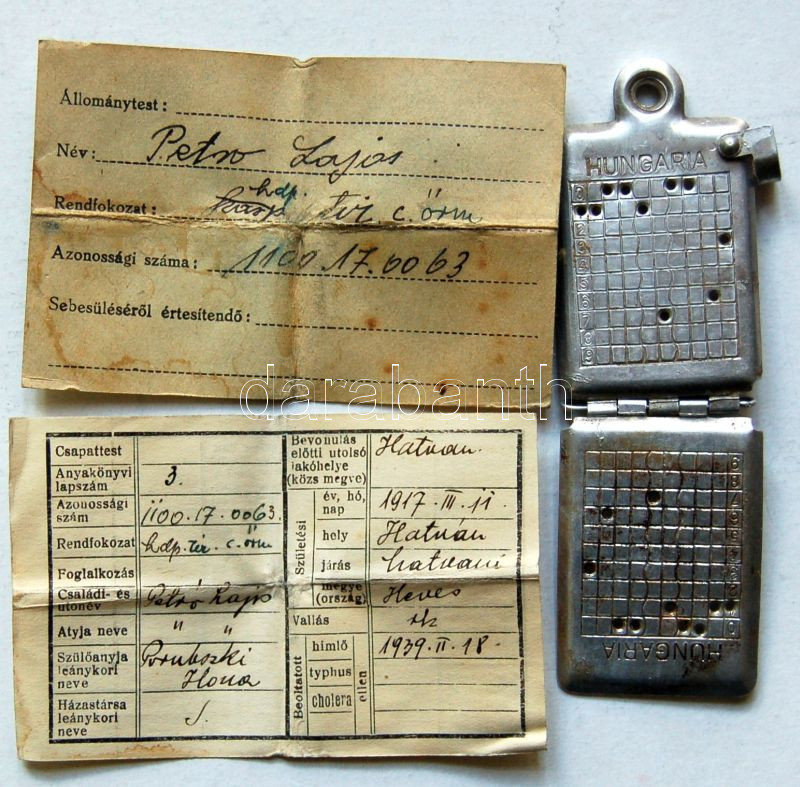 Állománytest:
Név: Petro Lajos
Rendfokozat: hdp. tir. c. őrm
Azonossági száma: 1100.17.0063
Sebesüléséről értesítendő:
HUNGARIA
0
1
2
3
4
5
6
7
8
9
darabanth
Csapattest
Anyakönyvi lapszám 3.
Azonossági szám 1100.17.0063.
Rendfokozat hdp. tir. c. őrm
Foglalkozás
Családi- és utónév Petró Lajos
Atyja neve " "
Szülőanyja leánykori neve Ilona
Házastársa leánykori neve
Bevonulás előtti utolsó lakóhelye (közs megye) Hatvan.
Születési
év, hó, nap 1917. III. 11.
hely Hatván
járás hatvani
megye (ország) Heves
Vallás rk
Beoltatott
himlő 1939. II. 18.
typhus
cholera
ellen
HUNGARIA